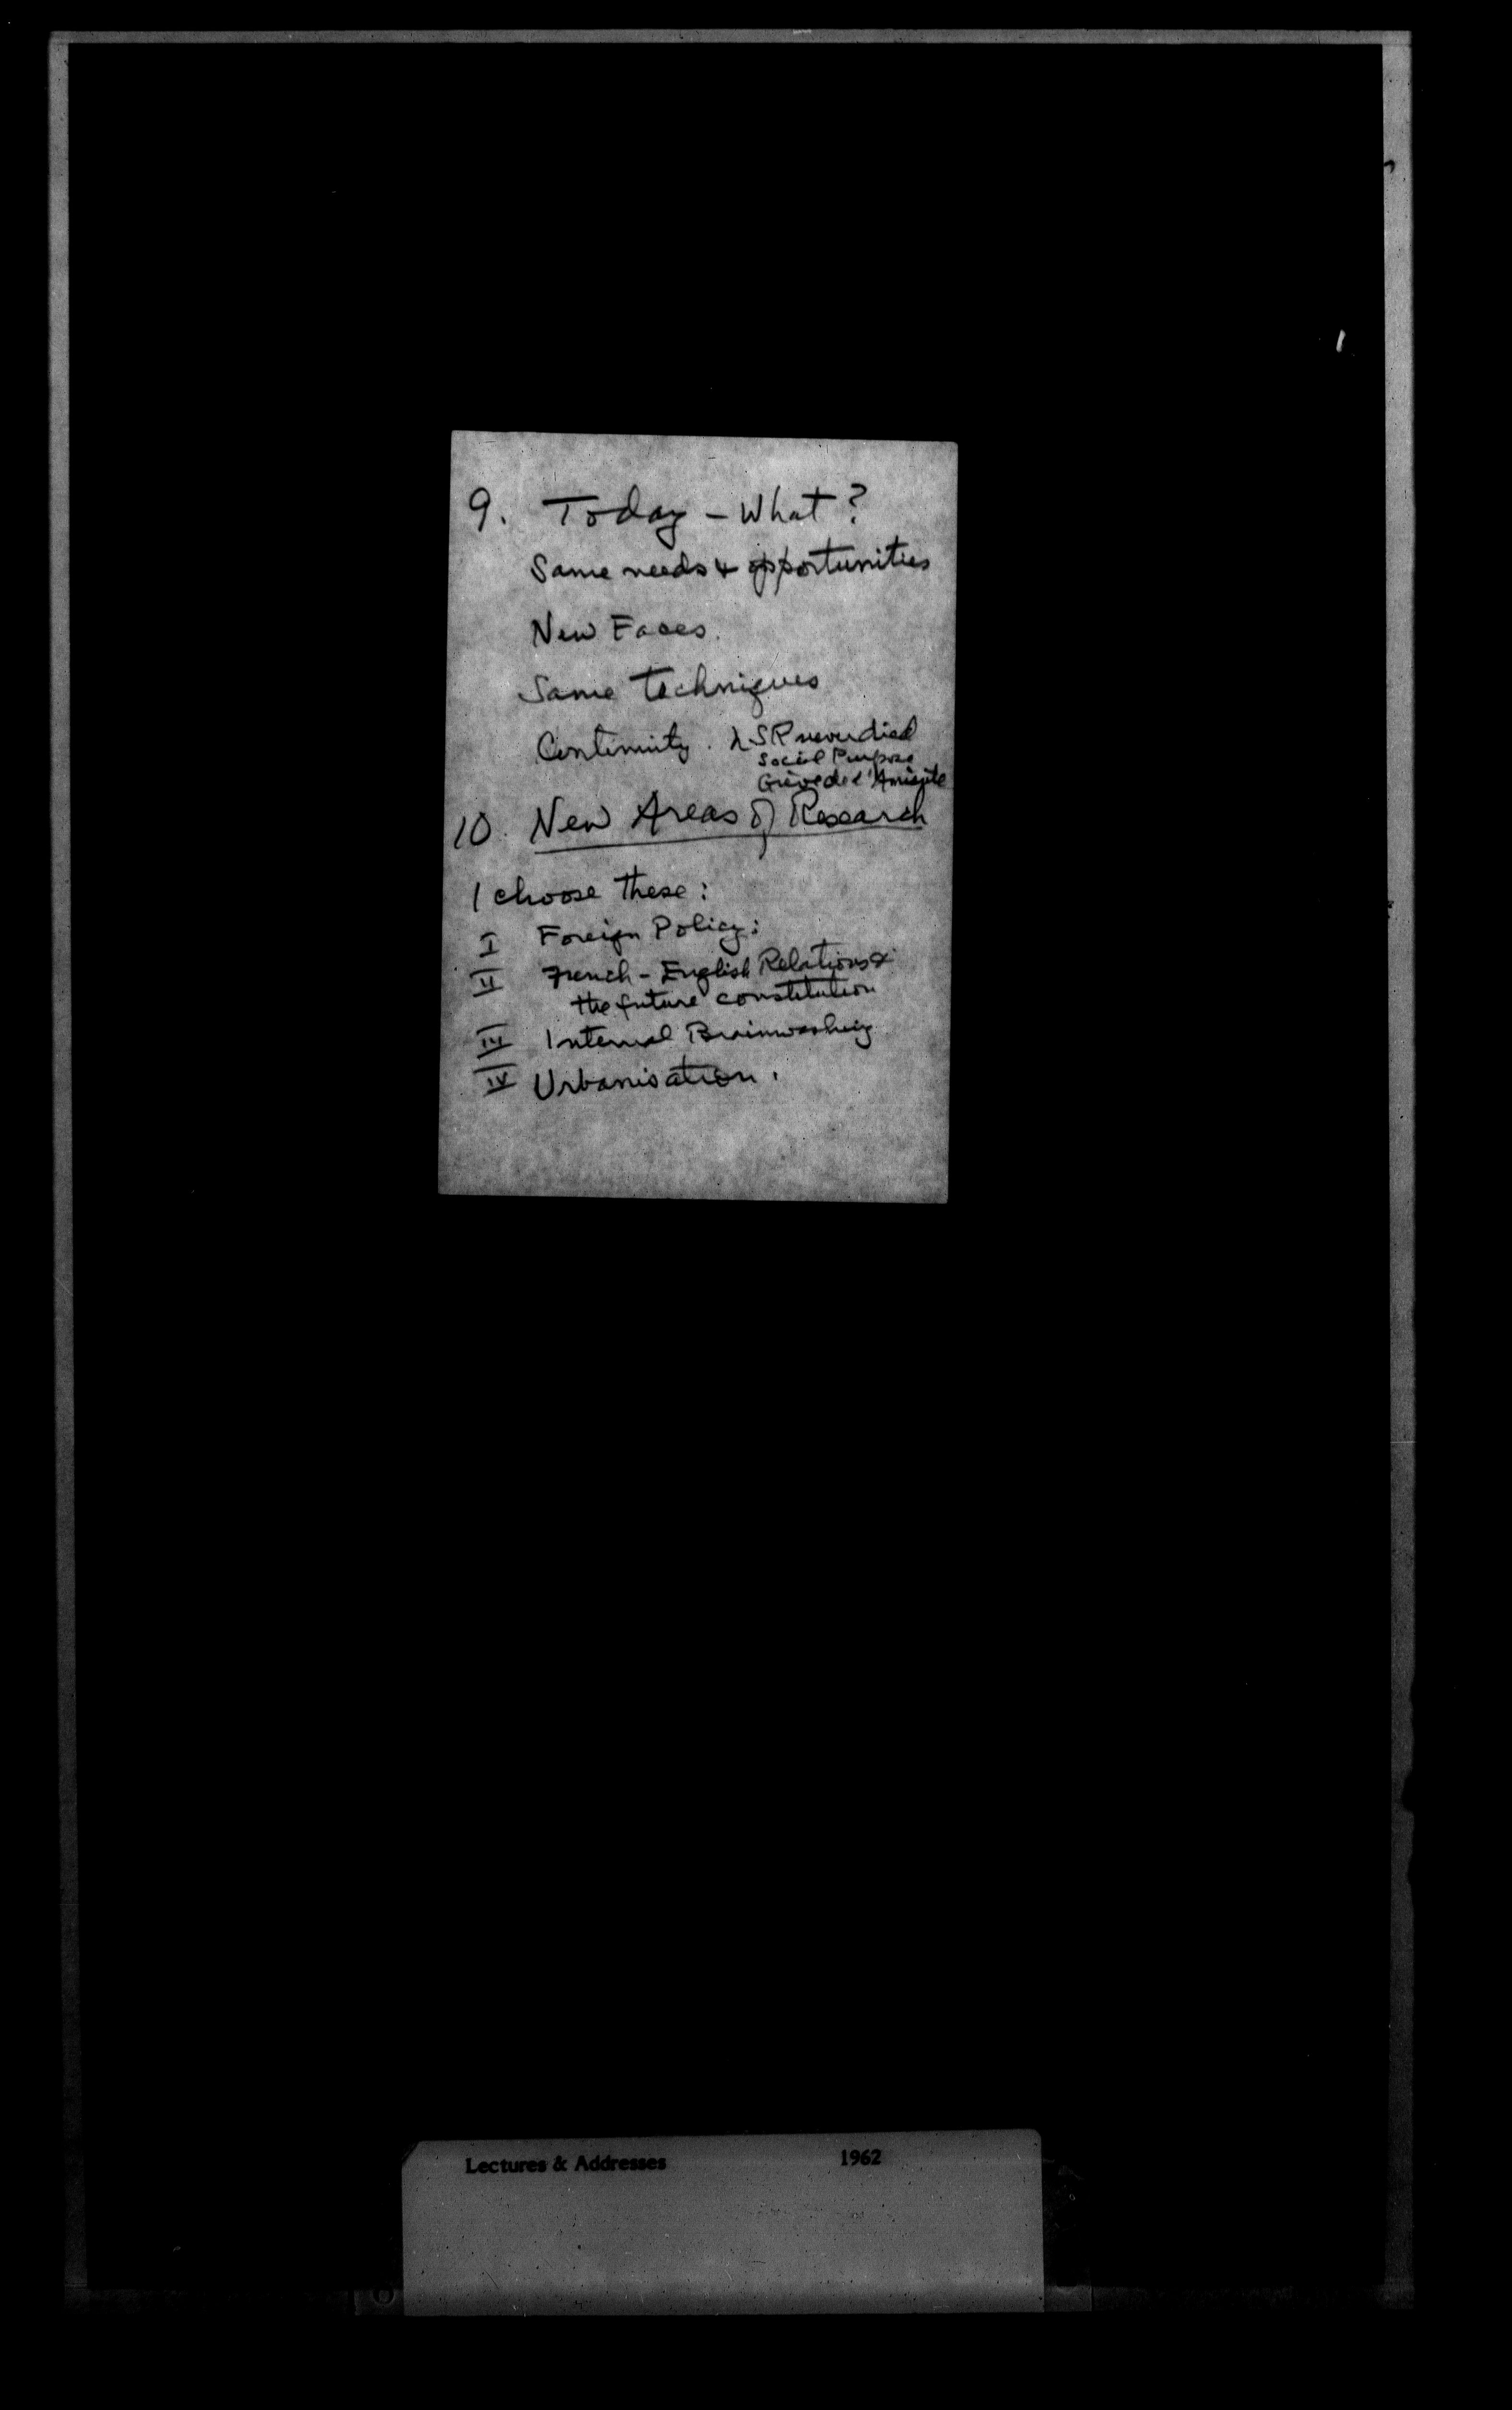 9. Today - What?
Same needs & opportunities
New Faces.
Same techniques
Continuity. LSR never died
Social Purpose
Grève de l'Amiante
10. New Areas of Research
I choose these:
I Foreign Policy:
II French - English Relations &
the future constitution
III Internal Brainwashing
IV Urbanisation.
Lectures & Addresses 1962